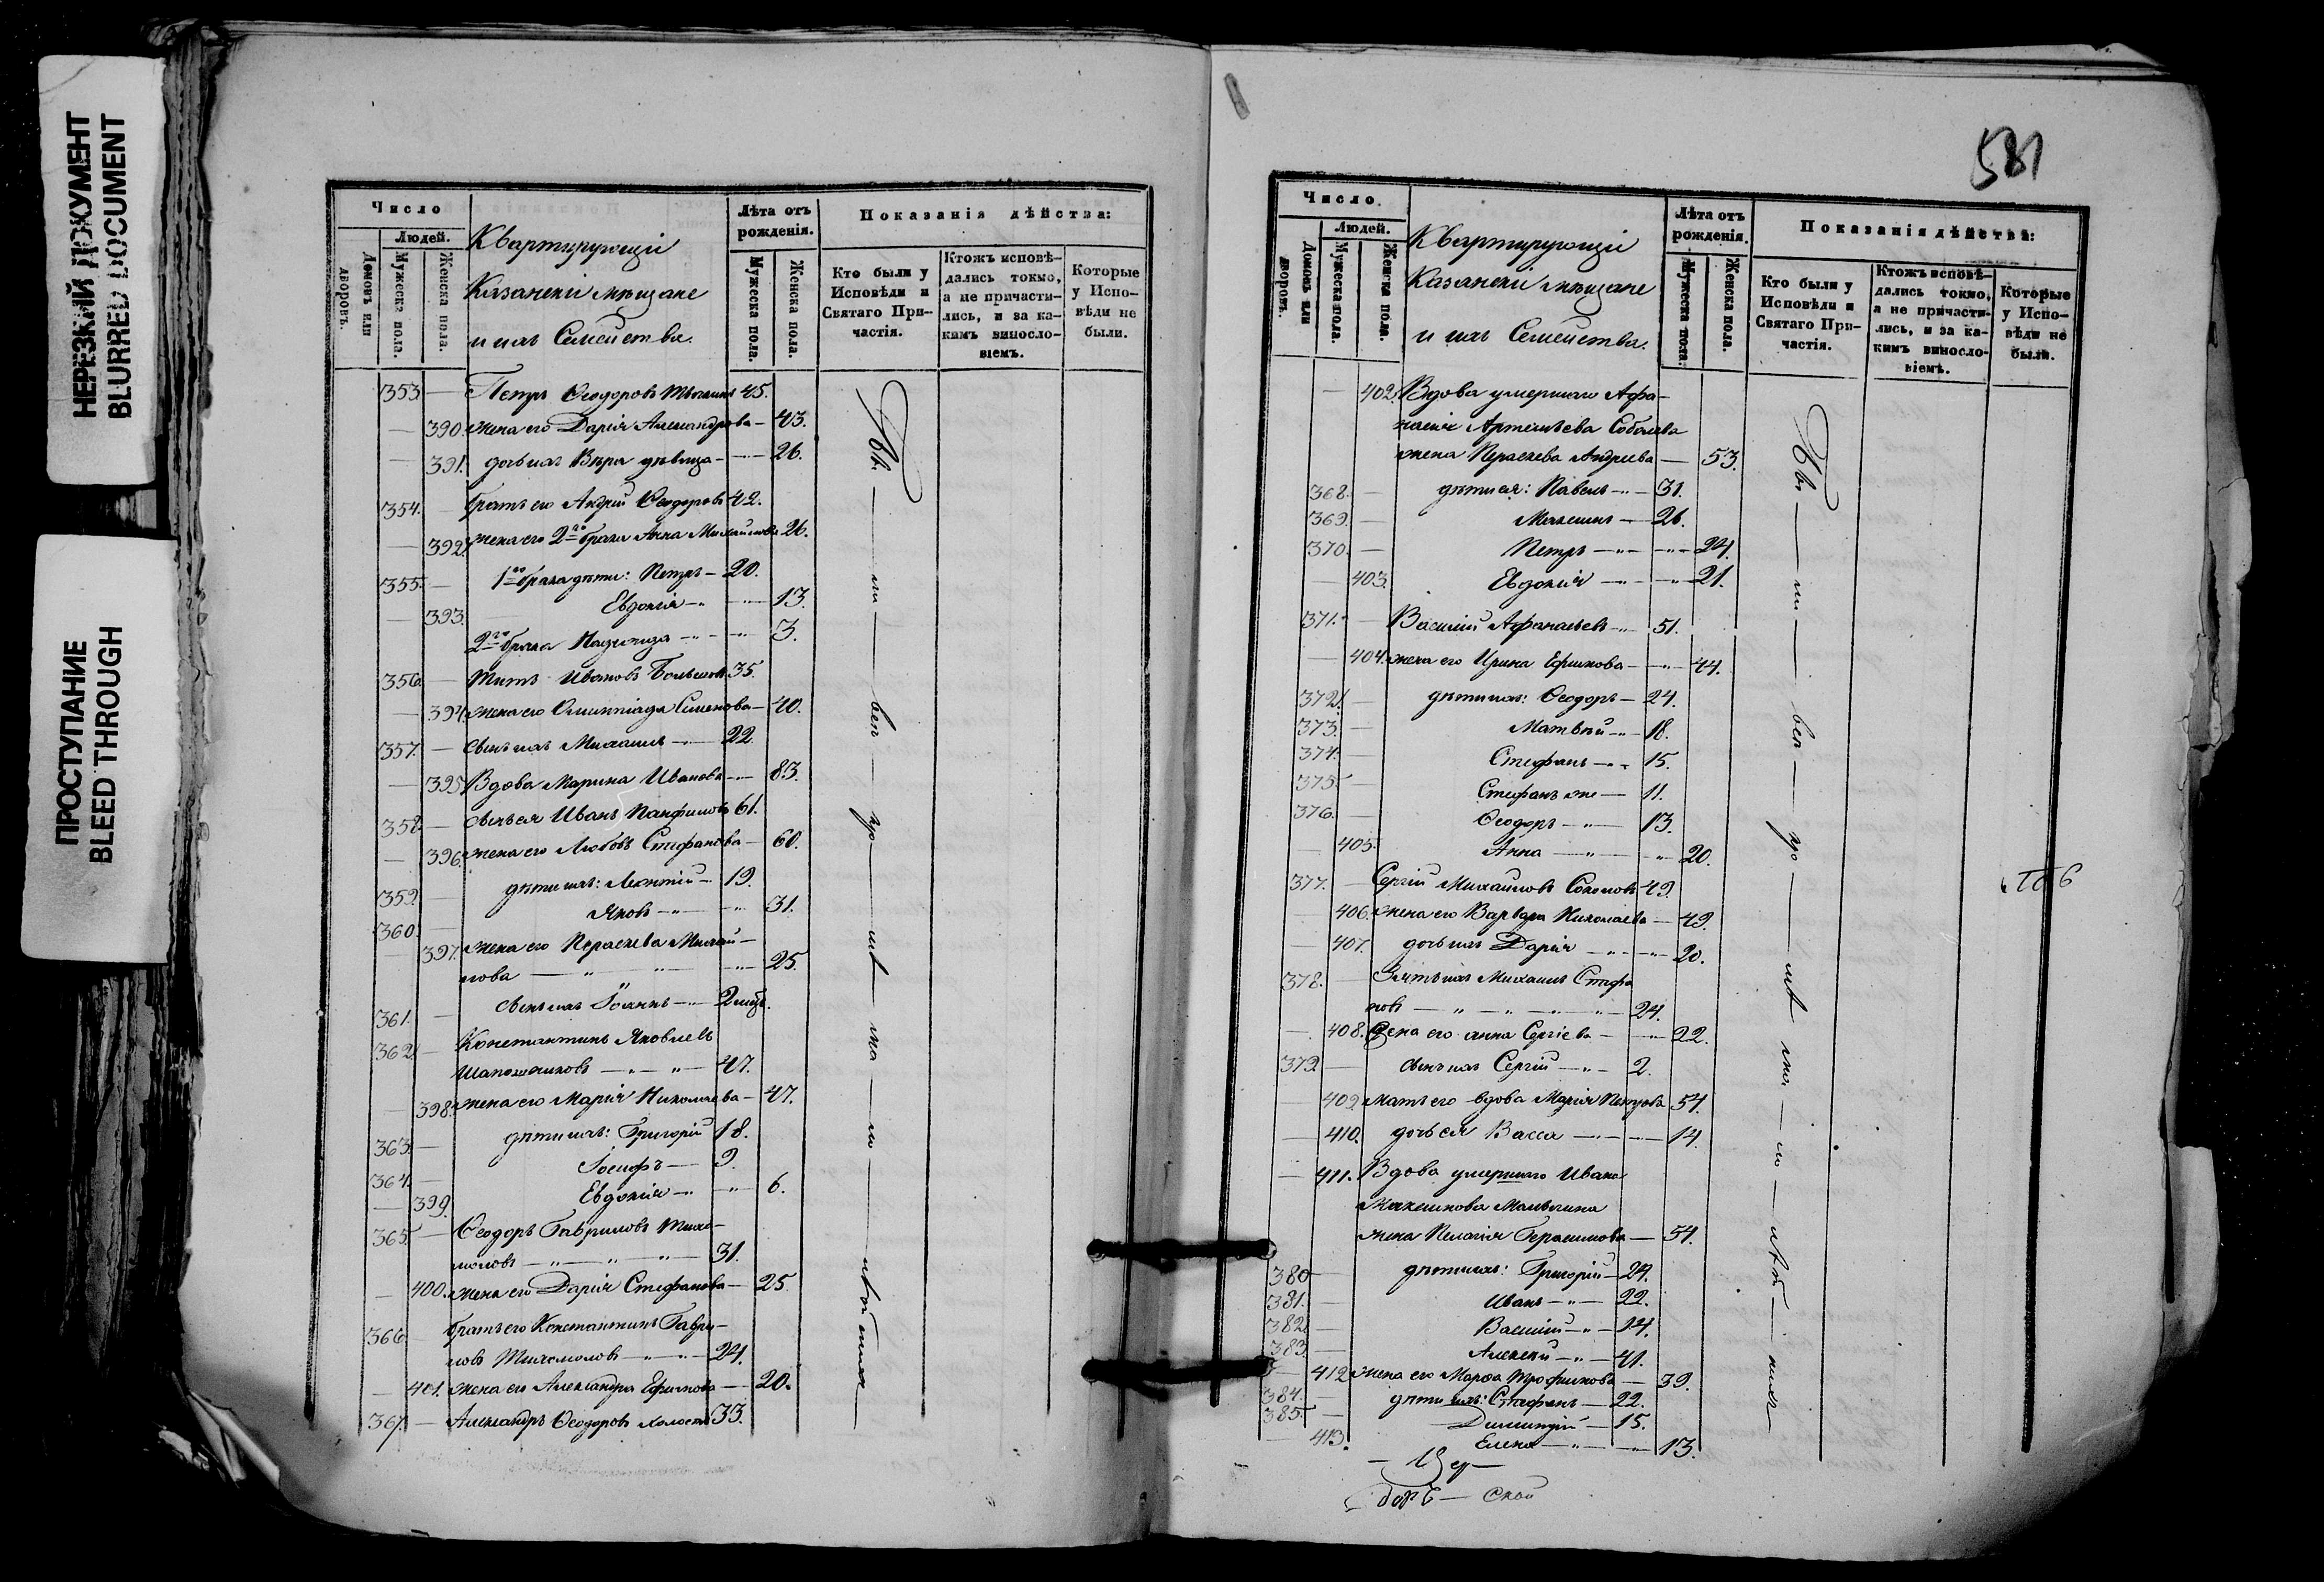 НЕРЕЗКИЙ ДОКУМЕНТ
BLURRED DOCUMENT
ПРОСТУПАНИЕ
BLEED THROUGH
Число
Людей.
Домовъ или дворовъ.
Мужеска пола.
Женска пола.
Квартирующіи
Казанскіи мѣщане
и ихъ Семейства.
Лѣта отъ рожденія.
Мужеска пола.
Женска пола.
Показанія дѣйства:
Кто были у Исповѣди и Святаго Причастія.
Ктожъ исповѣдались токмо, а не причастились, и за какимъ винословіемъ.
Которые у Исповѣди не были.
353. — Петръ Ѳеодоровъ 45.
— 390. жена его Дарія Александрова — 43.
— 391. дочь ихъ Вѣра дѣвица — 26.
354. братъ его Андрей Ѳеодоровъ 42.
— 392. жена его 2го брака Анна Михайлова 26.
355. — 1го брака дѣти: Петръ — 20.
— 393. Евдокія — 13.
2го брака — 3.
356. — Титъ Ивановъ Большовъ 35.
— 394. жена его Олимпіада Семенова — 40.
357. — сынъ ихъ Михаилъ — 22.
— 395. Вдова Марина Иванова — 83.
358. — сынъ ея Иванъ Панфиловъ 61.
— 396. жена его Любовь Стефанова — 60.
359. — дѣти ихъ: Леонтій — 19.
360. — Яковъ — 31.
— 397. жена его Параскева Михай-
лова — 25.
361. — сынъ ихъ Іоаннъ — 2 мѣс.
362. — Константинъ Яковлевъ
Шапошниковъ — 47.
— 398. жена его Марія Николаева — 47.
363. — дѣти ихъ: Григорій 18.
364. — Іосифъ — 9.
— 399. Евдокія — 6.
365. — Ѳеодоръ Гавриловъ Тихо-
моловъ — 31.
— 400. жена его Дарія Стефанова — 25.
366. — братъ его Константинъ Гаври-
ловъ Тихомоловъ — 24.
— 401. жена его Александра Ефимова — 20.
367. — Александръ Ѳеодоровъ холостъ 33.
581
Число.
Людей.
Домовъ или дворовъ.
Мужеска пола.
Женска пола.
Квартирующіи
Казанскіи мѣщане
и ихъ Семейства.
Лѣта отъ рожденія.
Мужеска пола.
Женска пола.
Показанія дѣйства:
Кто были у Исповѣди и Святаго Причастія.
Ктожъ исповѣдались токмо, а не причастились, и за какимъ винословіемъ.
Которые у Исповѣди не были.
— 402. Вдова умершаго Афа-
насія Артемьева Соболева
жена Параскева Андреева — 53.
368. — дѣти ея: Павелъ — 31.
369. — Максимъ — 26.
370. — Петръ — 24.
— 403. Евдокія — 21.
371. — Василій Афанасьевъ — 51.
— 404. жена его Ирина Ефимова — 44.
372. — дѣти ихъ: Ѳеодоръ — 24.
373. — Матвѣй — 18.
374. — Стефанъ — 15.
375. — Стефанъ же — 11.
376. — Ѳеодоръ — 13.
— 405. Анна — 20.
377. — Сергій Михайловъ Соколовъ 49.
— 406. жена его Варвара Николаева — 49.
— 407. дочь ихъ Дарія — 20.
378. — Зять ихъ Михаилъ Стефа
новъ — 24.
— 408. жена его Анна Сергіева — 22.
379. — сынъ ихъ Сергій — 2.
— 409. мать его вдова Марія Петрова 54.
— 410. дочь ея Васса — 14.
— 411. Вдова умершаго Ивана
Максимова Малыгина
жена Пелагія Герасимова — 54.
380 — дѣти ихъ: Григорій — 24.
381. — Иванъ — 22.
382. — Василій — 14.
383. — Алексѣй — 41.
— 412 жена его Марѳа Трофимова — 39.
384. — дѣти ихъ: Стефанъ — 22.
385. — Димитрій — 15.
— 413. Елена — 13.